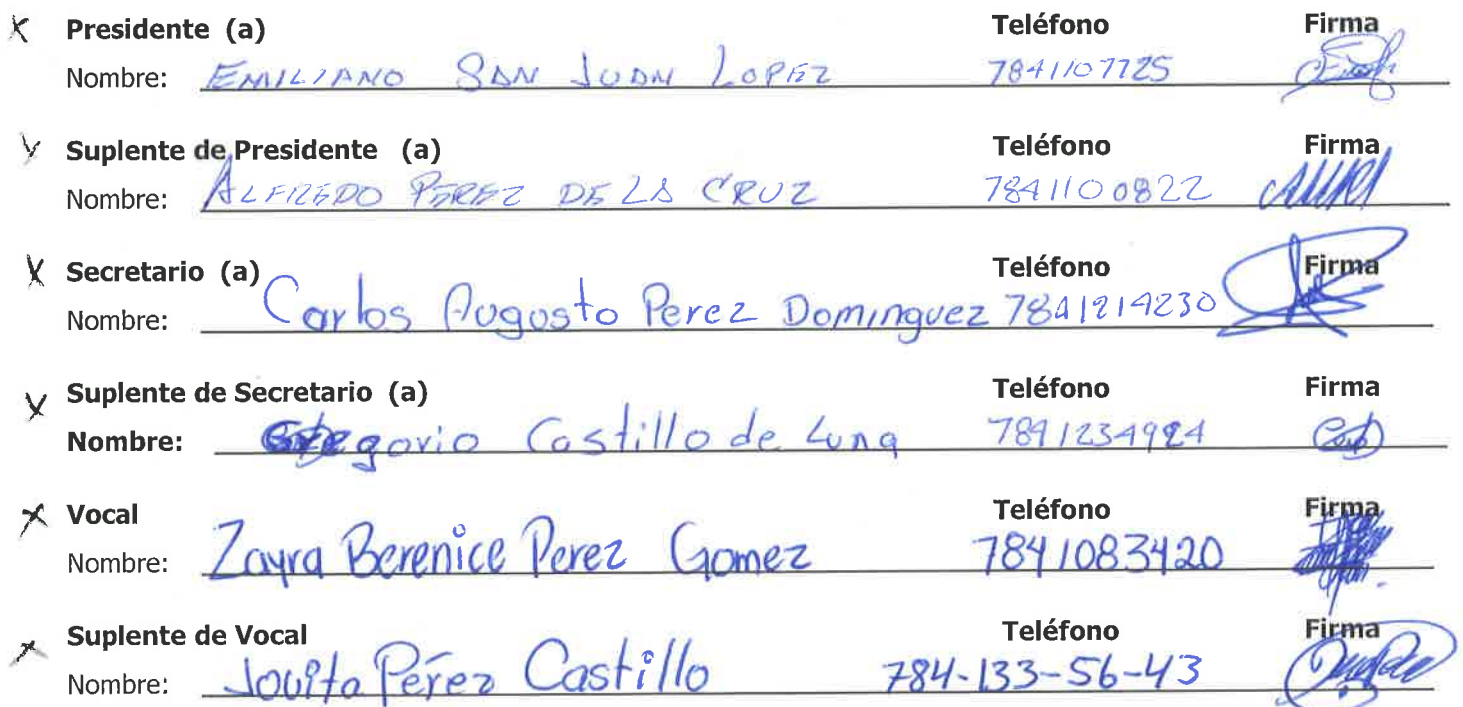 Presidente (a) Teléfono Firma
Nombre: EMILIANO SAN JUAN LOPEZ 7841107725
Suplente de Presidente (a) Teléfono Firma
Nombre: ALFREDO PEREZ DE LA CRUZ 7841100822
Secretario (a) Teléfono Firma
Nombre: Carlos Augusto Perez Dominguez 7841214230
Suplente de Secretario (a) Teléfono Firma
Nombre: Gregorio Castillo de Luna 7841234924
Vocal Teléfono Firma
Nombre: Zayra Berenice Perez Gomez 7841083420
Suplente de Vocal Teléfono Firma
Nombre: Jovita Pérez Castillo 784-133-56-43